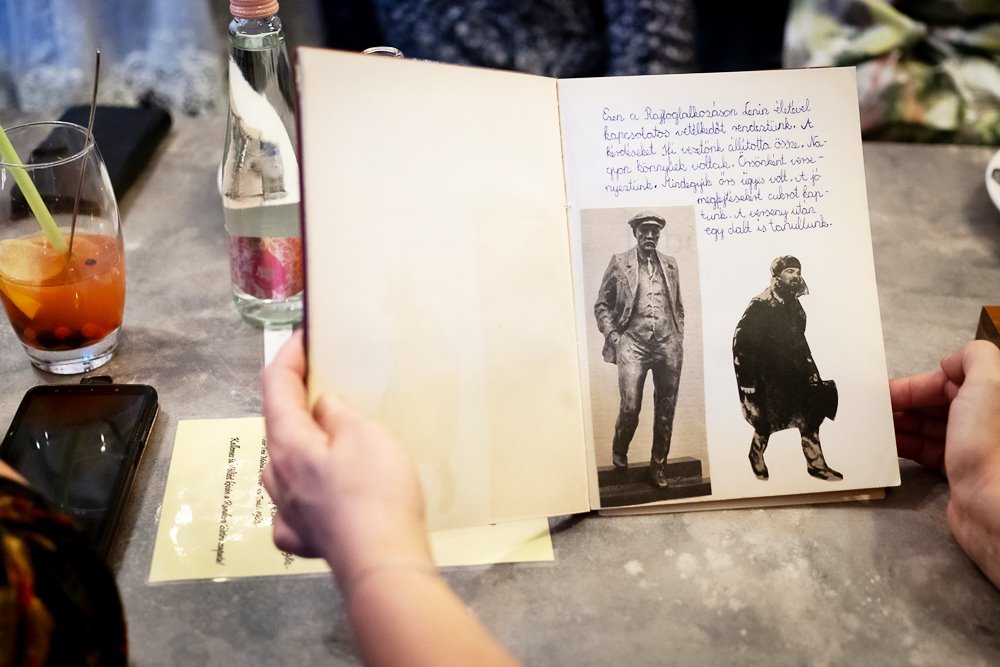 Ezen a Rajfoglalkozáson Lenin életével
kapcsolatos vetélkedőt rendeztünk. A
kérdéseket Ifi vezetőnk állította össze. Na-
gyon könnyűek voltak. Őrsönként verse-
nyeztünk. Mindegyik őrs ügyes volt. A jó
megfejtésekért cukrot kap-
tunk. A verseny után
egy dalt is tanultunk.
Kellemes